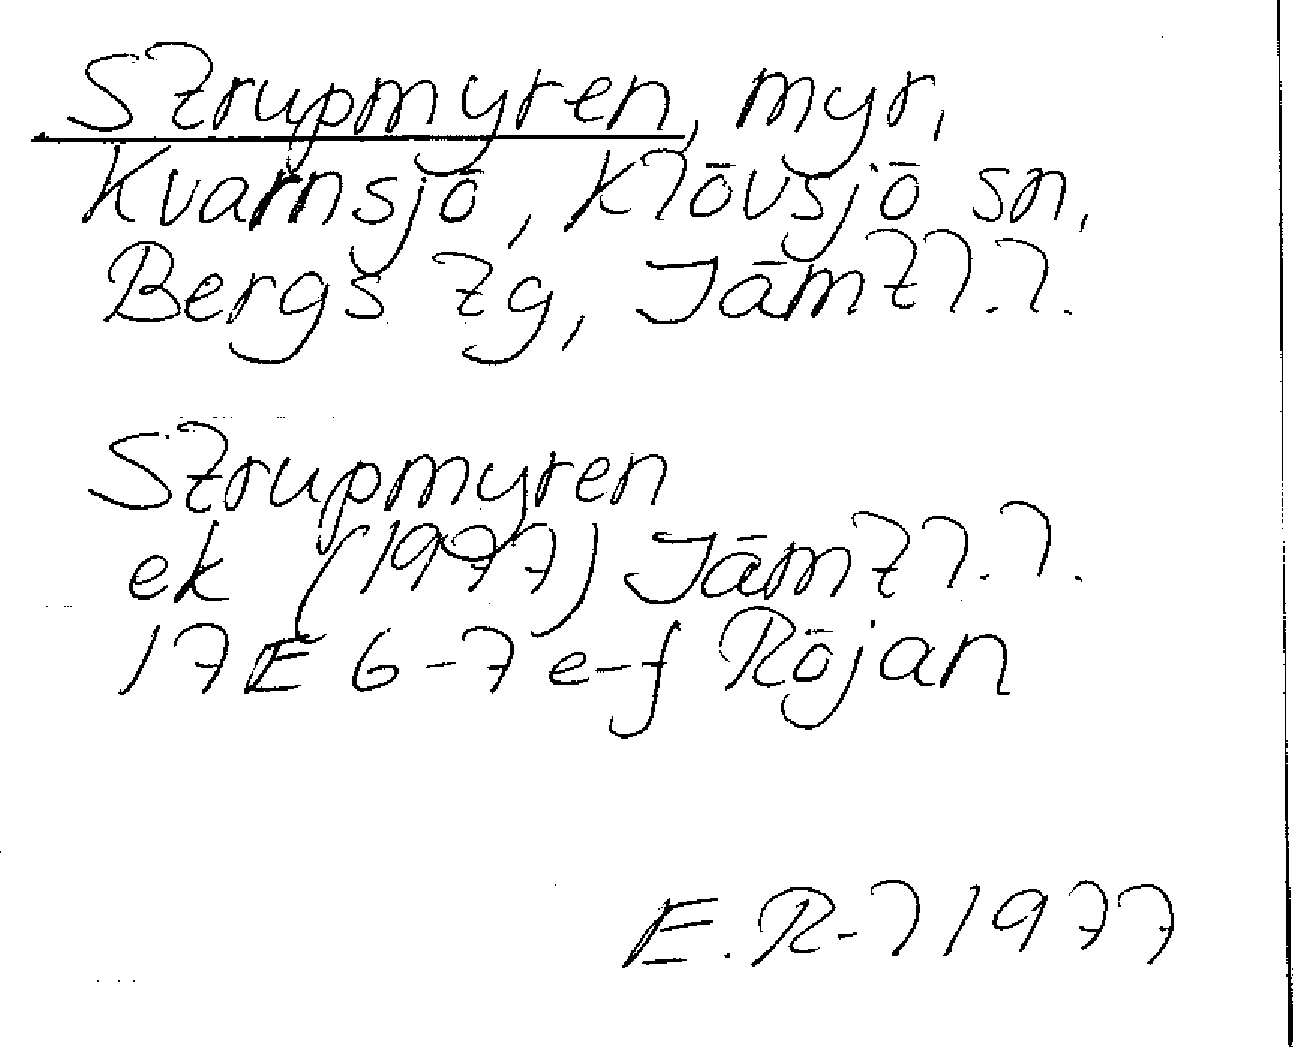 Strupmyren, myr,
Kvarnsjö, Klövsjö sn,
Bergs tg, Jämtl.l.
Strupmyren
ek (1977) Jämtl.l.
17E 6-7 e-f Röjan
E. R-l 1977